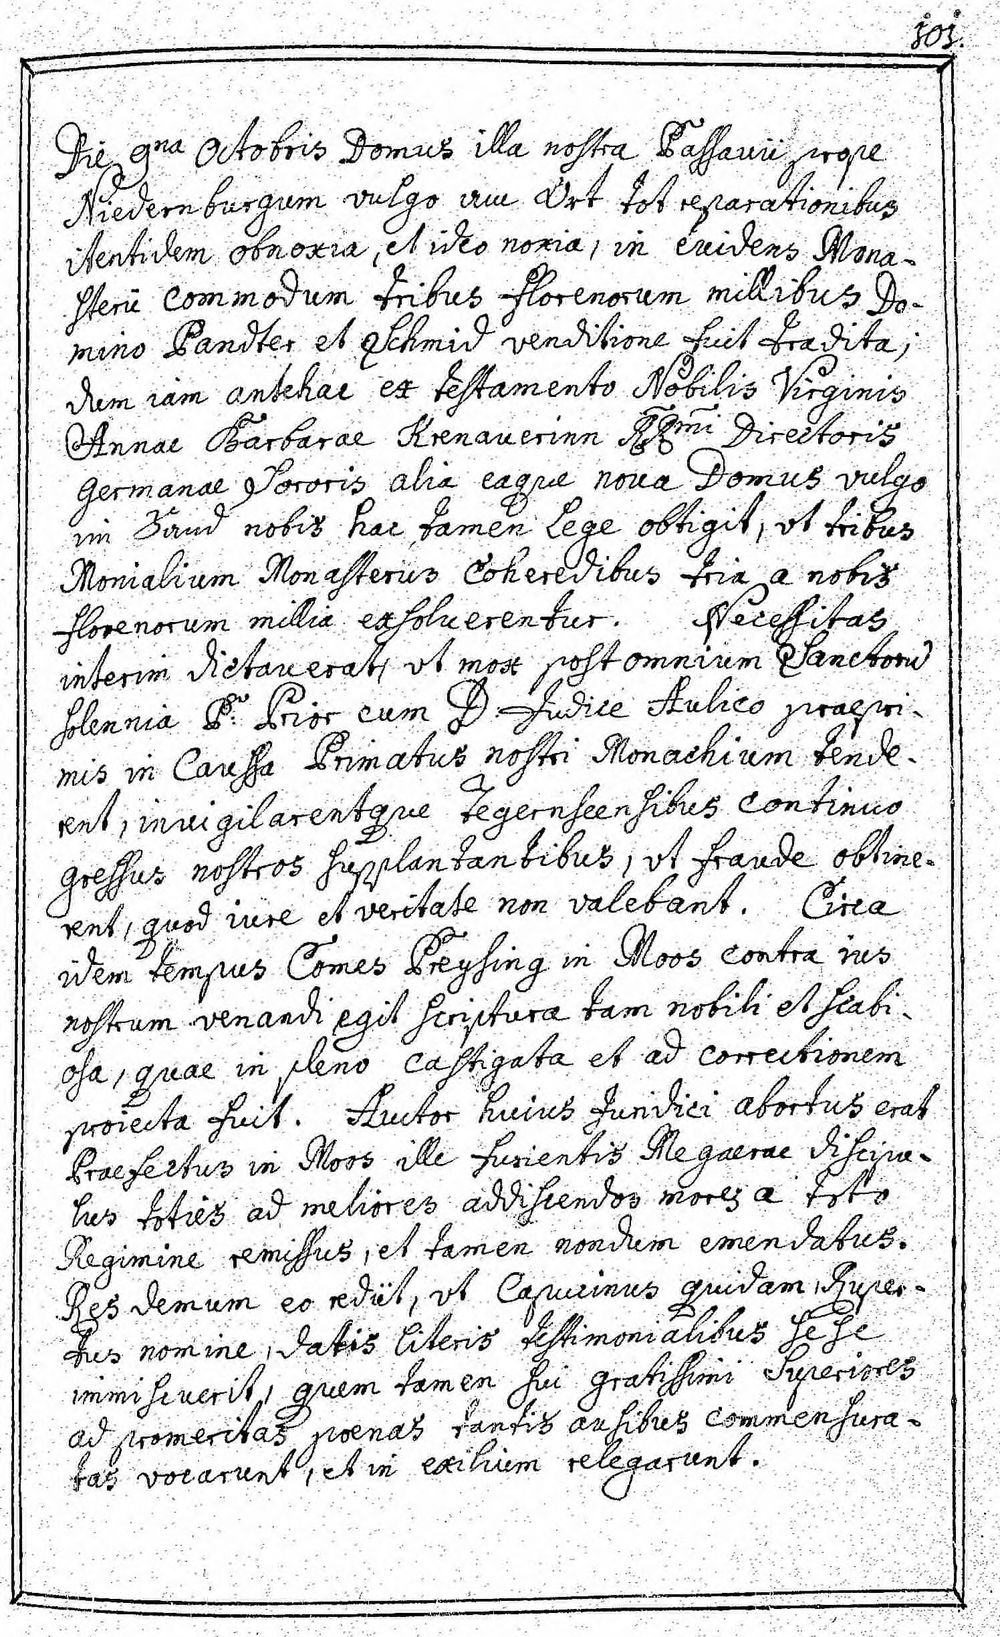 101.
Die 9na Octobris Domus illa nostra Passavii prope
Niedernburgum vulgo im Ort tot reparationibus
itentidem obnoxia, et ideo noxia, in evidens Mona-
sterii commodum tribus florenorum millibus Do-
mino Pandter et Schmid venditione fuit tradita;
dum iam antehac ex testamento Nobilis Virginis
Annae Barbarae Krenauerinn RR.mi Directoris
germanae Sororis alia eaque nova Domus vulgo
im Sand nobis hac tamen Lege obtigit, vt tribus
Monialium Monasteriis Coheredibus tria a nobis
florenorum millia exsoluerentur. Necessitas
interim dictauerat, vt mox post omnium Sanctorū
solennia P. Prior cum D. Judice Aulico praepri-
mis in Caussa Primatus nostri Monachium tende-
rent, inuigilarentque Tegernseensibus continuo
gressus nostros supplantantibus, vt fraude obtine-
rent, quod iure et veritate non valebant. Circa
idem tempus Comes Preysing in Moos contra ius
nostrum venandi egit scriptura tam nobili et scabi-
osa, quae in pleno castigata et ad correctionem
proiecta fuit. Auctor huius Juridici abortus erat
Praefectus in Moos ille furientis Megaerae discipu-
lus toties ad meliores addiscendos mores a toto
Regimine remissus, et tamen nondum emendatus.
Res demum eo rediit, vt Capucinus quidam, Ruper-
tus nomine, datis literis testimonialibus sese
immiscuerit, quem tamen sui gratissimi Superiores
ad promeritas poenas tantis ausibus commensura-
tas vocarunt, et in exilium relegarunt.